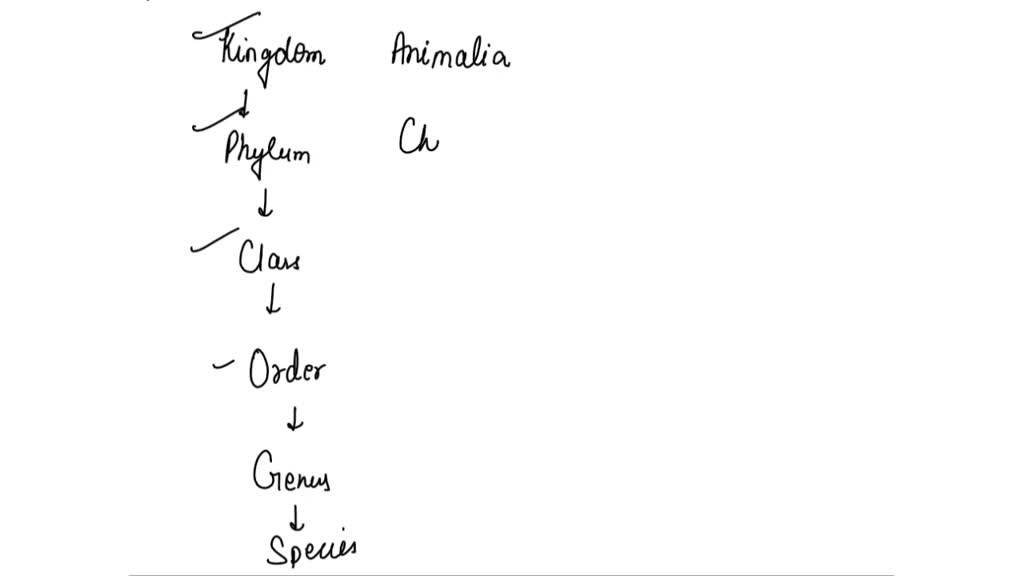 Kingdom Animalia
Phylum Ch
Class
Order
Genus
Species